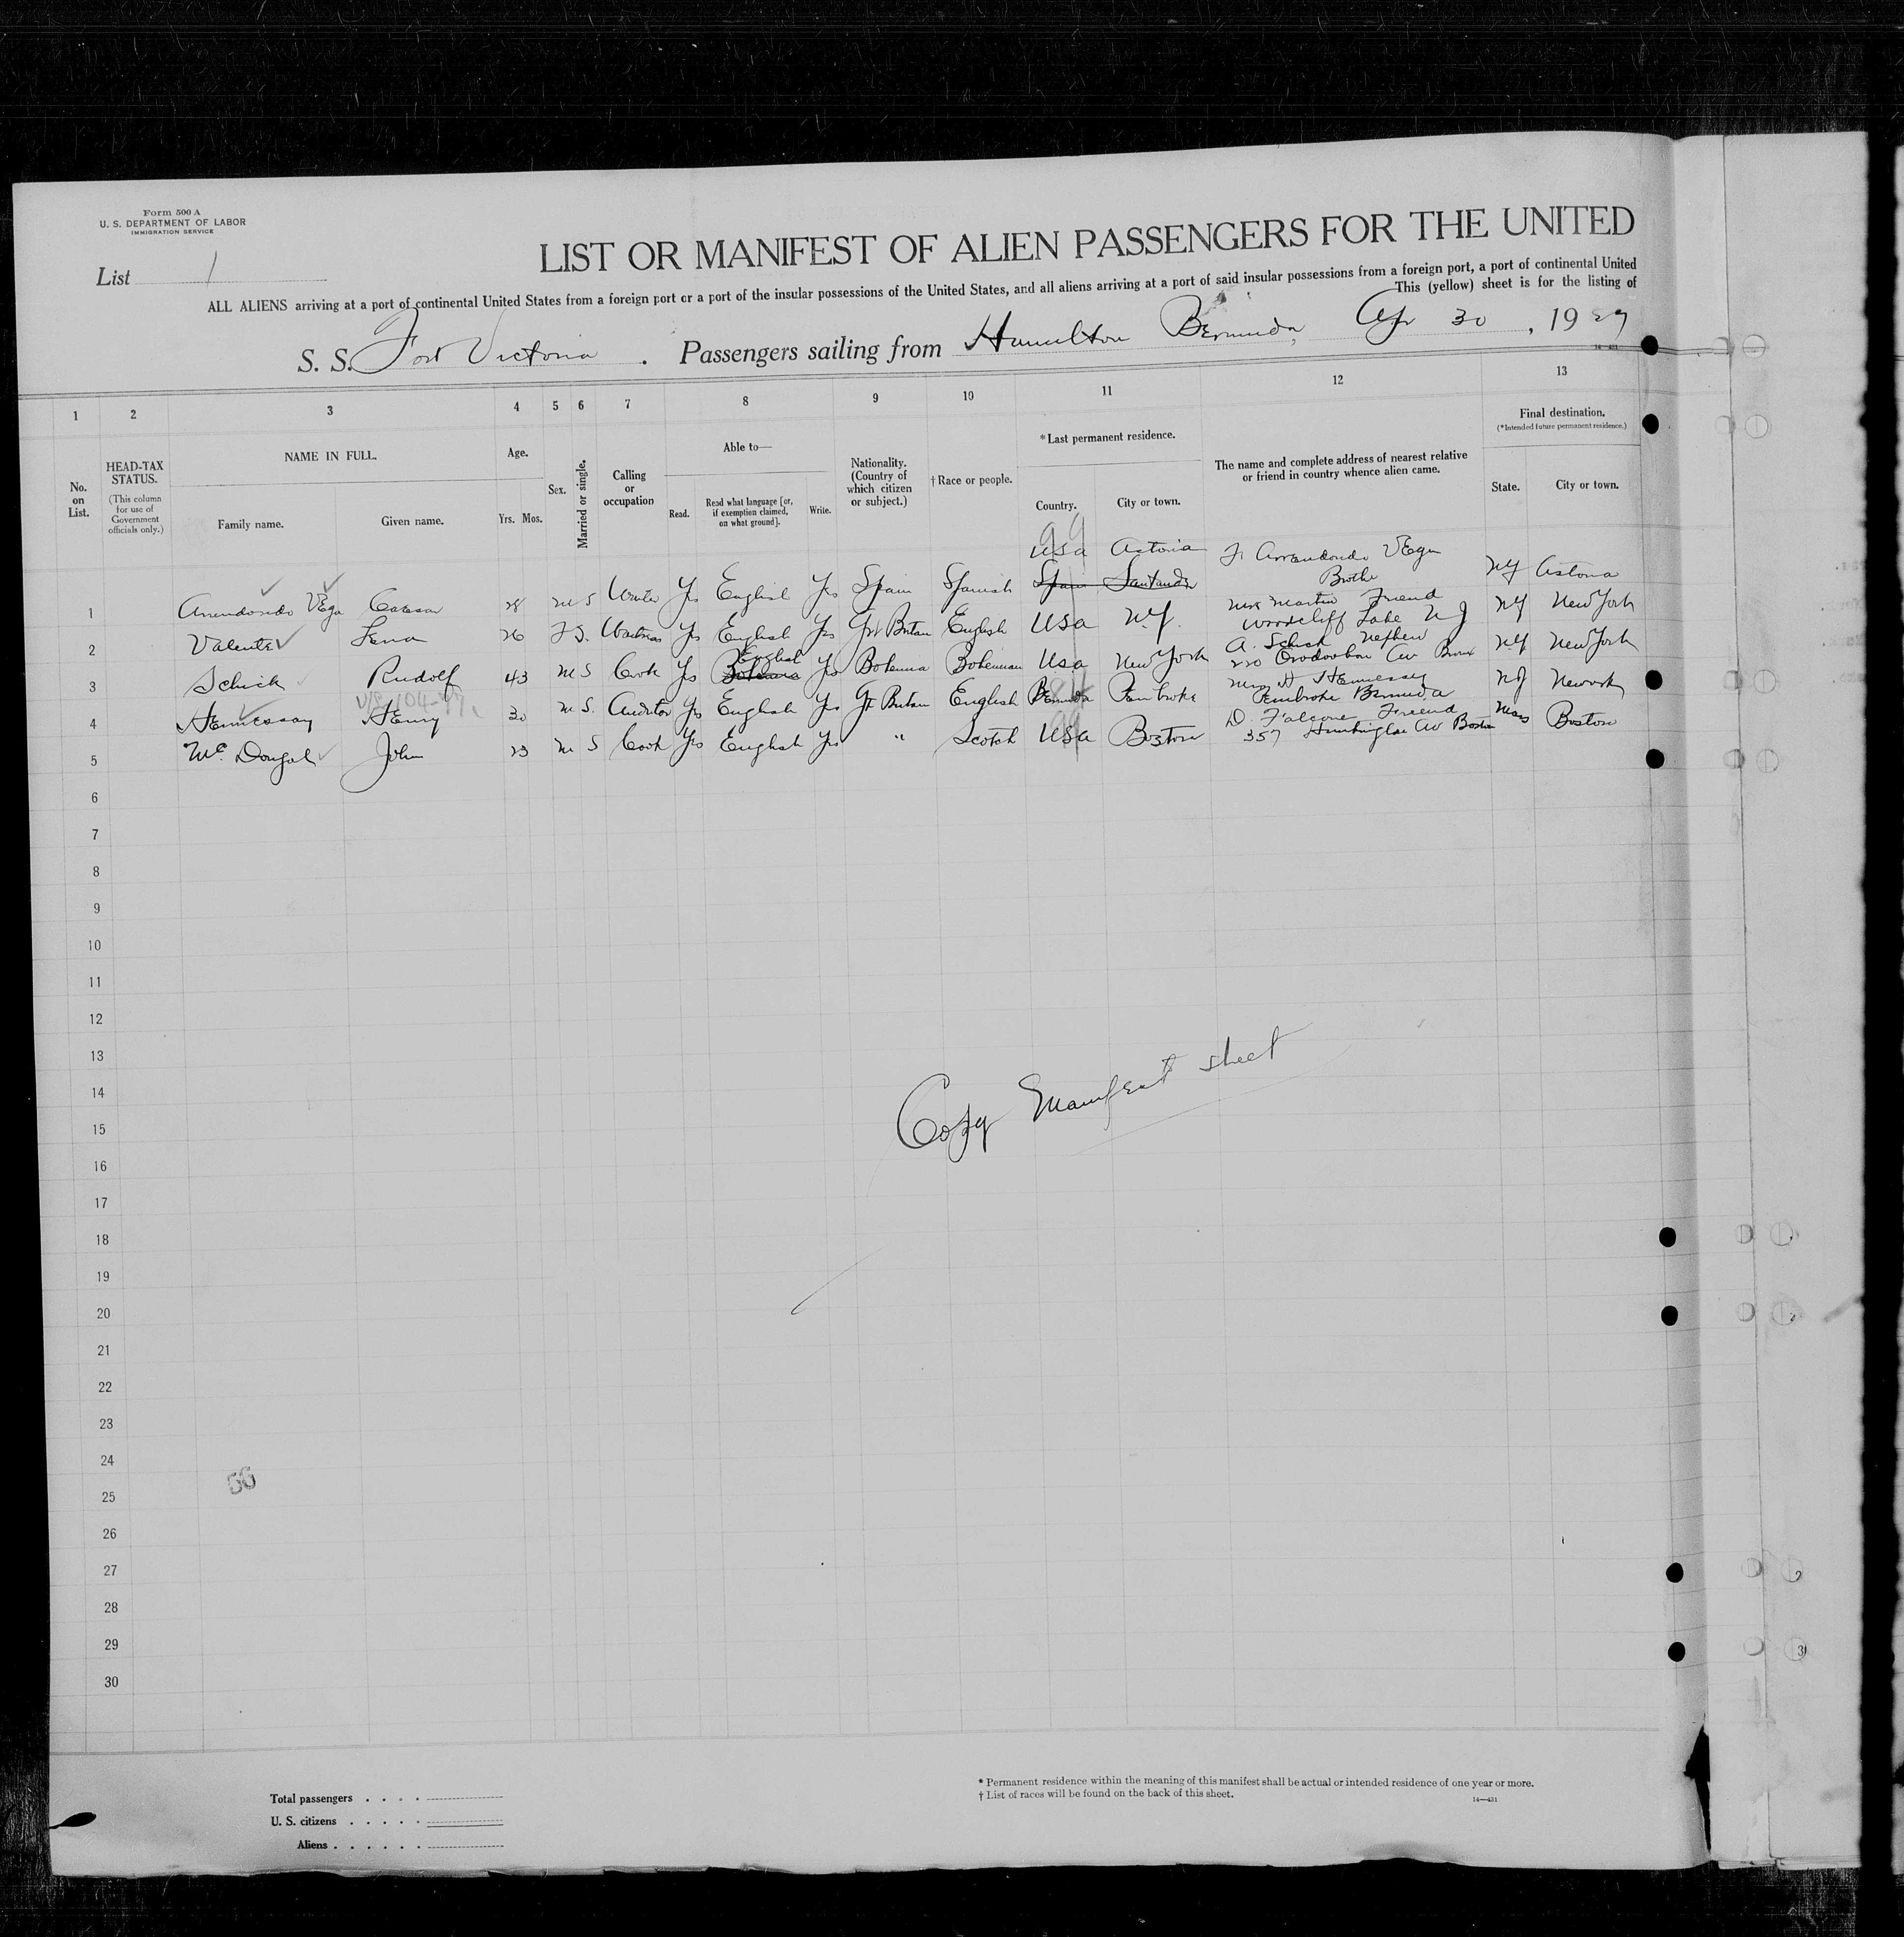 Form 500 A
U. S. DEPARTMENT OF LABOR
IMMIGRATION SERVICE
List 1
LIST OR MANIFEST OF ALIEN PASSENGERS FOR THE UNITED
ALL ALIENS arriving at a port of continental United States from a foreign port or a port of the insular possessions of the United States, and all aliens arriving at a port of said insular possessions from a foreign port, a port of continental United
This (yellow) sheet is for the listing of
S. S. Fort Victoria . Passengers sailing from Hamilton Bermuda, Apr 30 , 1929
14—431
1 2 3 4 5 6 7 8 9 10 11 12 13
No. on List.
HEAD-TAX STATUS.
(This column for use of Government officials only.)
NAME IN FULL.
Family name. Given name.
Age.
Yrs. Mos.
Sex.
Married or single.
Calling or occupation
Able to—
Read. Read what language [or, if exemption claimed, on what ground]. Write.
Nationality. (Country of which citizen or subject.)
† Race or people.
*Last permanent residence.
Country. City or town.
The name and complete address of nearest relative or friend in country whence alien came.
Final destination.
(*Intended future permanent residence.)
State. City or town.
99
USA Astoria
1 Arrendondo Vega 28 M S Waiter Yes English Yes Spain Spanish Spain Santander F. Arrendondo Vega Brothe NY Astoria
2 Valente Lena 26 F S. Waitress Yes English Yes Grt Britan English USA N.Y. Mrs Martin Friend Woodcliff Lake N J NY New York
3 Schick Rudolf 43 M S Cook Yes Bohemia English Yes Bohemia Bohemian Usa New York A. Schick Nephew Av Bronx NY New York
4 Hennessay Henry 30 M S. Auditor Yes English Yes Gt Britan English Bermuda Pembroke Mrs H Hennessey Pembroke Bermuda NJ Newark
5 Mc Dougal John 23 M S Cook Yes English Yes " Scotch USA Boston D. Falcone Friend 357 Huntington Av Boston Mass Boston
99
6
7
8
9
10
11
12
13
14
15
Copy Manifest sheet
16
17
18
19
20
21
22
23
24
56
25
26
27
28
29
30
Total passengers . . . .
U. S. citizens . . . . .
Aliens . . . . . .
* Permanent residence within the meaning of this manifest shall be actual or intended residence of one year or more.
† List of races will be found on the back of this sheet.
14—431